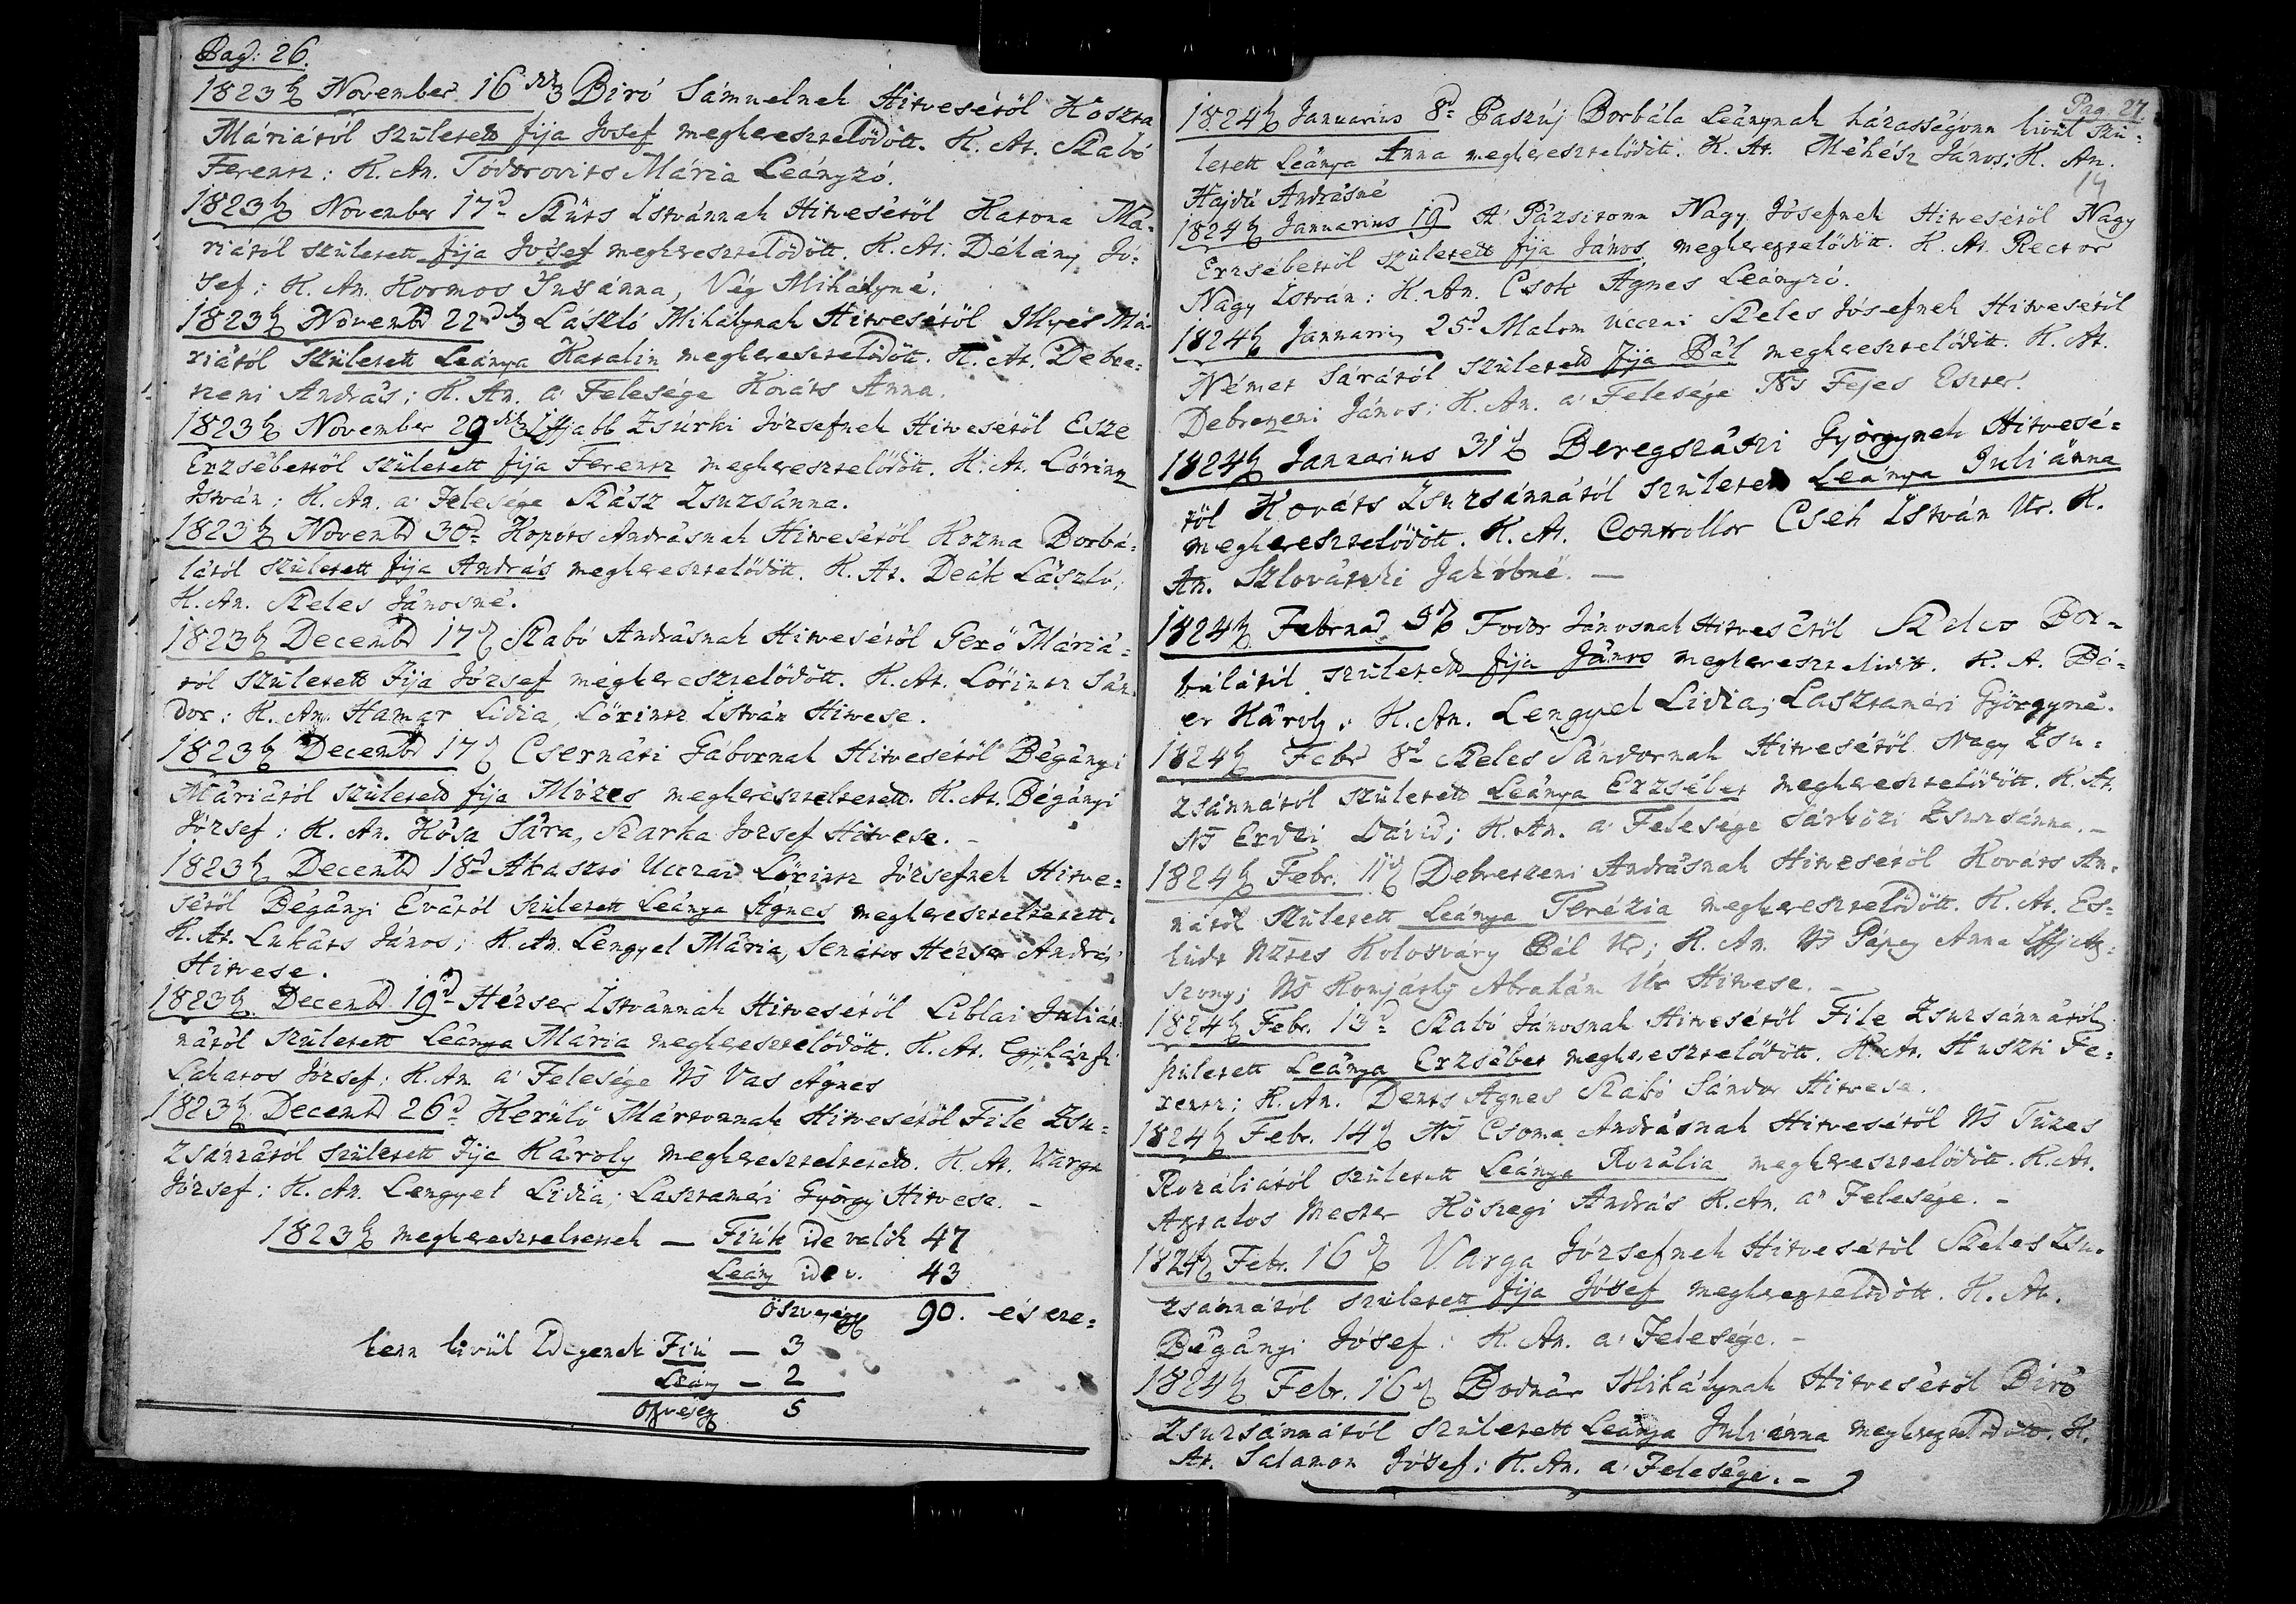 Pag: 26.
1823b November 16dik Biró Sámuelnek Hitvesétöl Koszta
Máriától született fija Josef megkeresztelődött. K. At. Szabó
Ferentz: K. An. Todorovits Mária Leányzó.
1823b November 17d Szüts Istvánnak Hitvesétöl Katona Má-
riától született fija Jósef megkeresztelődött. K. At. Dékány Jó-
sef: K. An. Kormos Susánna, Vég Mihályné.
1823b Novembr 22dik László Mihálynak Hitvesétöl Illyés Má-
riától született Leánya Katalin megkeresztelődött. K. At. Debre-
tzeni András; K. An. a' Felesége Kováts Anna.
1823b November 29dik Iffjabb Zsurki Józsefnek Hitvesétöl Esze
Erzsébettöl született fija Ferentz megkeresztelődött. K. At. Lőrintz
István; K. An. a' Felesége Szász Zsuzsánna.
1823b Novembr 30d Kopóts Andrásnak Hitvesétöl Kozma Borbá-
lától született fija András megkeresztelődött. K. At. Deák László;
K. An. Szeles Jánosné.
1823b Decembr 17d Szabó Andrásnak Hitvesétöl Gerő Máriá-
tól született Fija József megkeresztelődött. K. At. Lőrintz Sán-
dor: K. An. Hamar Lidia, Lőrintz István Hitvese.
1823b Decembr 17d Csernáti Gábornak Hitvesétöl Bégányi
Máriától született fija Mózes megkereszteltetett. K. At. Bégányi
József: K. An. Kósa Sára, Szarka Jozsef Hitvese. -
1823b Decembr 18d Akasztó Uttzai Lőrintz Józsefnek Hitve-
sétöl Bégányi Évától született Leánya Ágnes megkereszteltetett.
K. At. Lukáts János; K. An. Lengyel Mária, Senátor Hézser András
Hitvese.
1823b Decembr 19d Hézser Istvánnak Hitvesétöl Liblai Julián-
nától született Leánya Mária megkeresztelődött. K. At. Egyházfi
Lakatos József: K. An a' Felesége Ns Vas Ágnes
1823b Decembr 26d Kerülő Mártonnak Hitvesétöl File Zsu-
zsánnától született Fija Károly megkereszteltetett. K. At. Varga
József: K. An. Lengyel Lidia; Lasztanéri György Hitvese. -
1823b megkereszteltettek — Fiúk ide valók 47
Leány ide v. 43
öszveségg 90. és eze-
ken kivül Idegenek Fiú — 3
Leány — 2
öszveség 5
Pag. 27.
1824b Januarius 8d Paszuj Borbála Leánynak házasságonn kivül szü-
letett Leánya Anna megkeresztelődött. K. At. Méhész János; K. An.
Hajdú Andrásné
14
1824b Januarius 19d A' Pázsitonn Nagy Jósefnek Hitvesétöl Nagy
Erzsébettöl született fija János megkeresztelődött. K. At. Rector
Nagy István: K. An. Csok Ágnes Leányzó.
1824b Januarius 25d Malom Uttzai Szeles Jósefnek Hitvesétöl
Német Sárától született fija Pál megkeresztelődött. K. At.
Debretzeni János; K. An. a' Felesége Ns Fejes Eszter.
1824b Januarius 31d Beregszászi Györgynek Hitvesé-
töl Kováts Zsuzsánnától született Leánya Juliánna
megkeresztelődött. K. At. Controllor Cseh István Ur. K.
An. Szlovátski Jakobné. —
1824b Februar Fodor Jánosnak Hitvesétöl Szeles Bor-
bálától született fija János megkeresztelődött. K. A.
Károly: K. An. Lengyel Lidia; Lasztanéri Györgyné.
1824b Febr 8d Szeles Sándornak Hitvesétöl Nagy Zsu-
zsánnától született Leánya Erzsébet megkeresztelődött. K. At.
Ns Erdei Dávid; K. An. a' Felesége Sárközi Zsuzsánna. -
1824b Febr. 11d Debretzeni Andrásnak Hitvesétöl Kováts An-
nától született Leánya Terézia megkeresztelődött. K. At. Es-
küdt Nztes Kolosváry Pál Ur; K. An. Ns Pápay Anna Iffj Asz-
szony; Ns Komjáthy Abrahám Ur Hitvese. -
1824b Febr. 13d Szabó Jánosnak Hitvesétöl File Zsuzsánnától
született Leánya Erzsébet megkeresztelődött. K. At. Huszti Fe-
rentz; K. An. Dents Ágnes Szabó Sándor Hitvese.
1824b Febr. 14d Ns Csoma Andrásnak Hitvesétöl Ns Tüzes
Rozáliától született Leánya Rozália megkeresztelődött. K. At.
Asztalos Mester Kőszegi András K. An. a' Felesége. -
1824b Febr. 16d Varga Józsefnek Hitvesétöl Szeles Zsu-
zsánnától született fija Jósef megkeresztelődött. K. At.
Bégányi Jósef: K. An. a' Felesége. -
1824b Febr. 16d Bodnár Mihálynak Hitvesétöl Biró
Zsuzsánnától született Leánya Juliánna megkeresztelődött. K.
At. Salamon Jósef: K. An. a' Felesége. -